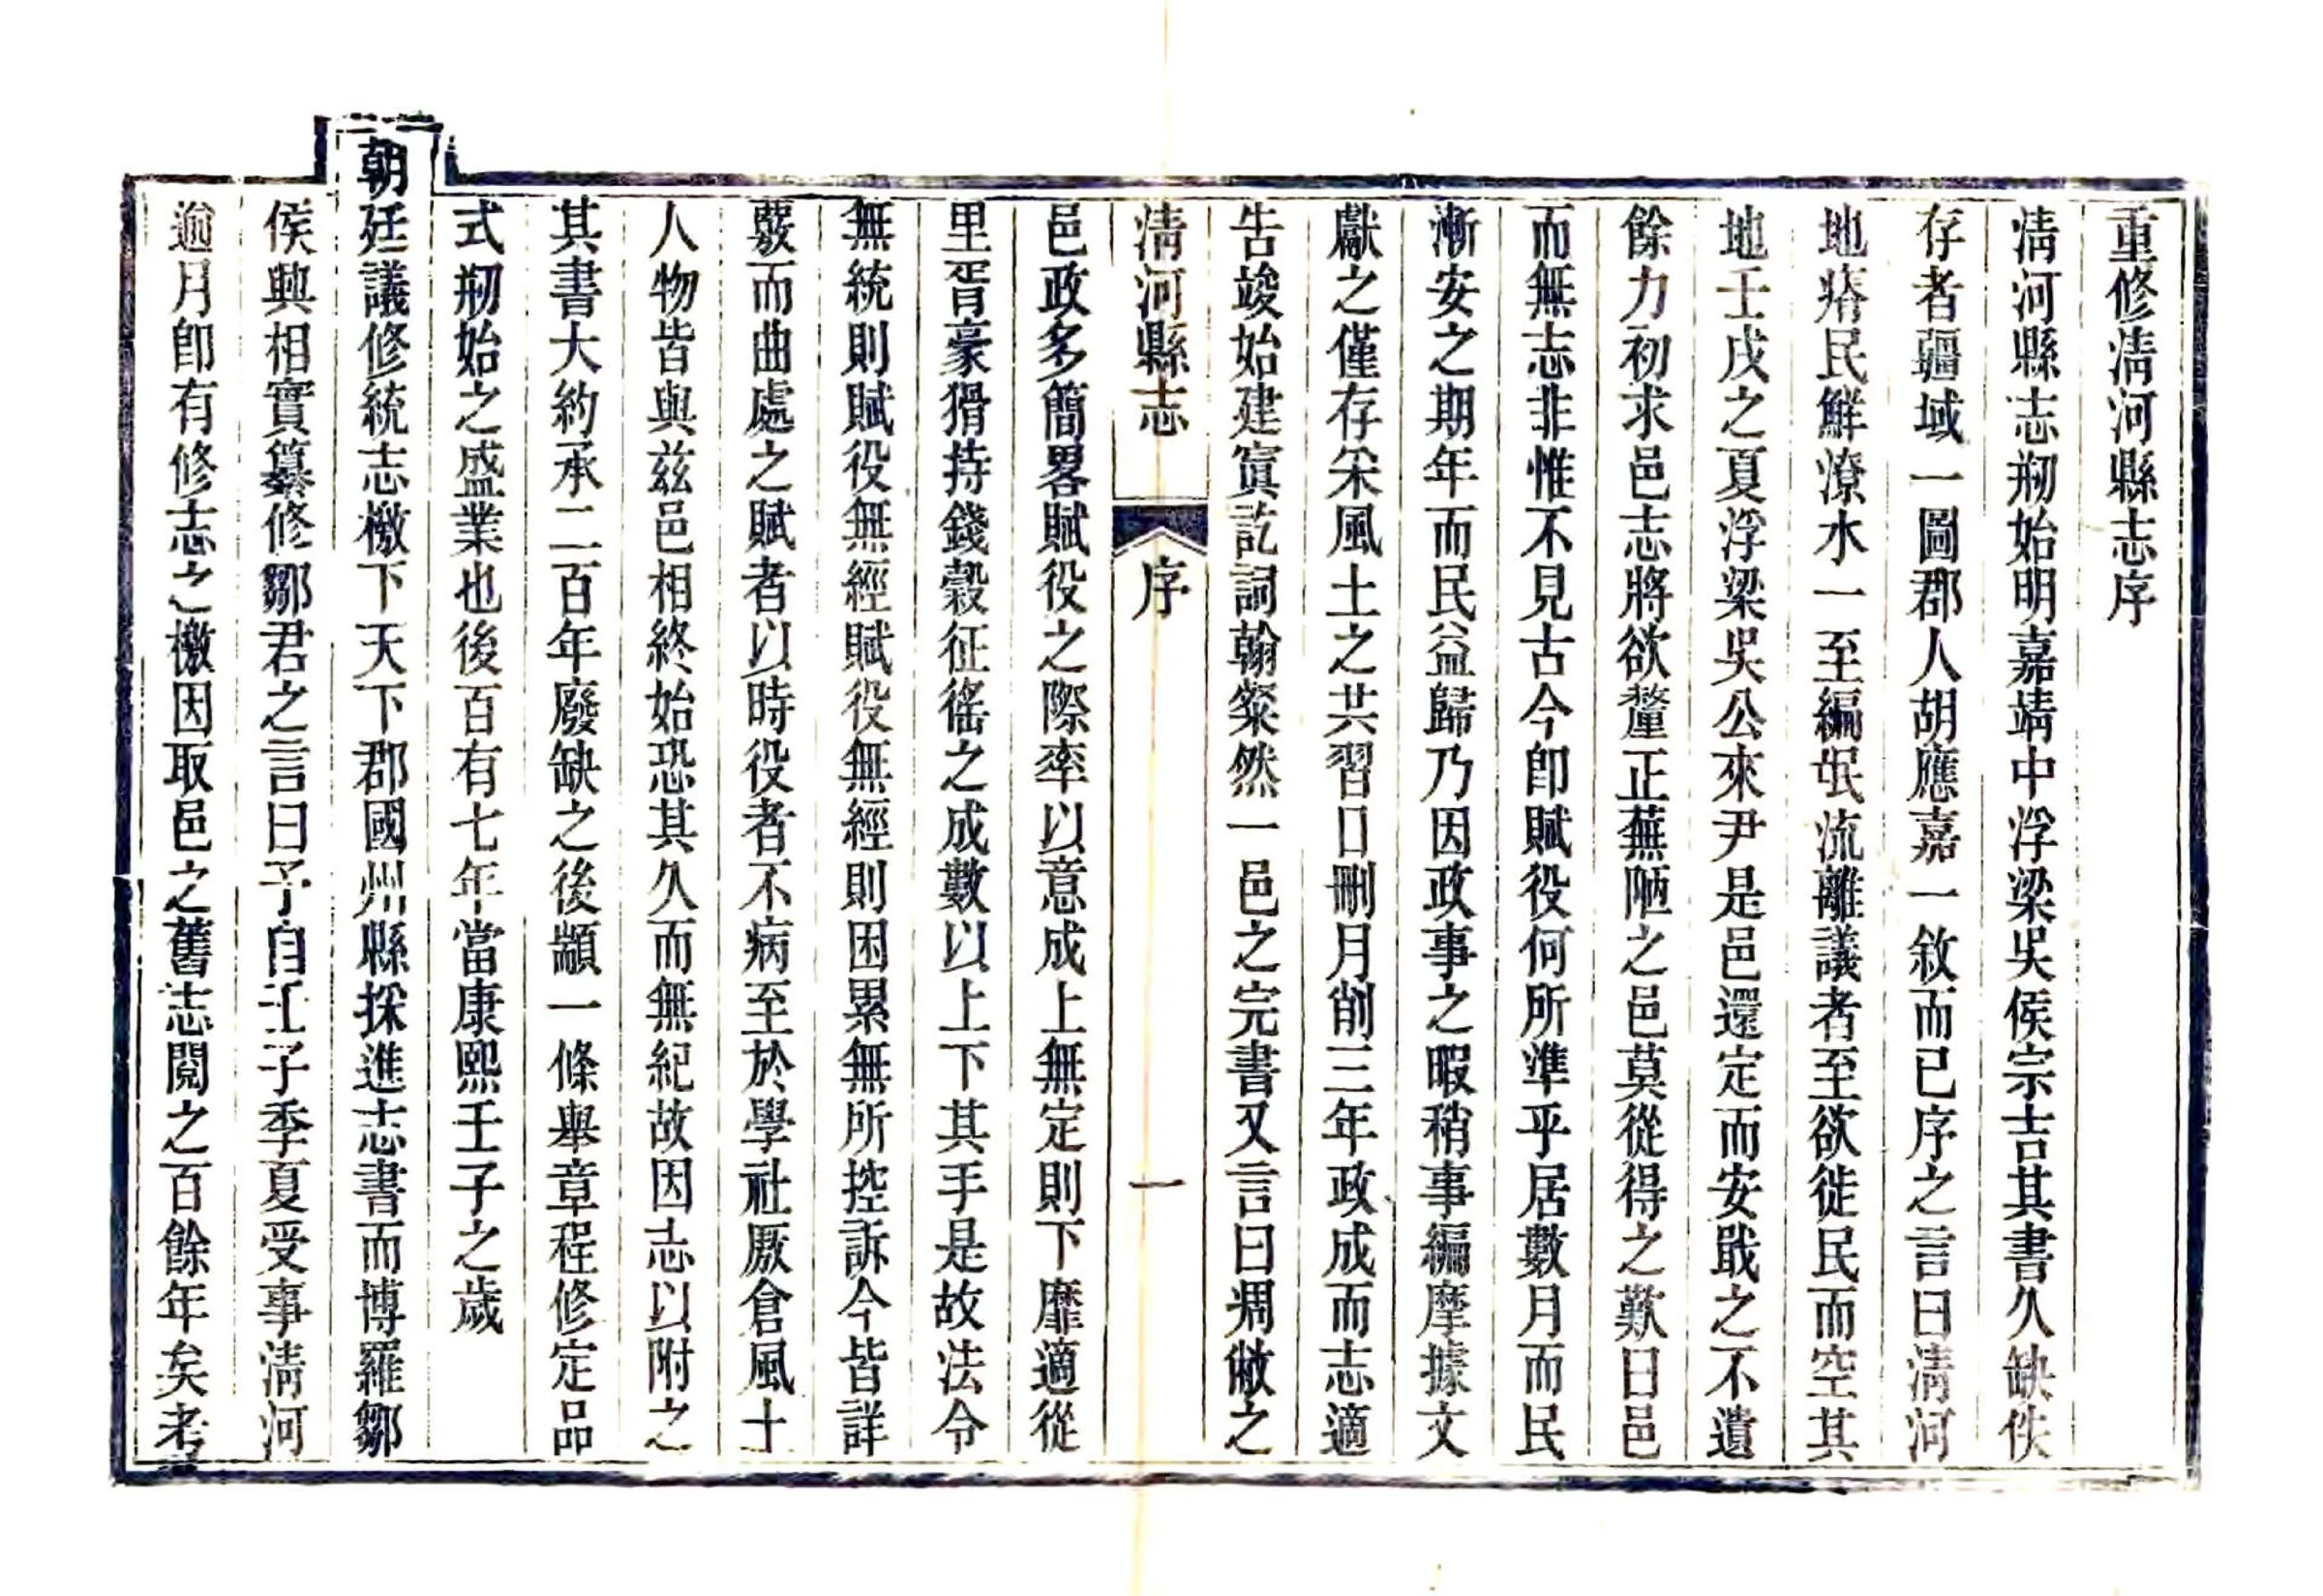 重修淸河縣志序
淸河縣志刱始明嘉靖中浮梁吳侯宗吉其書久缺佚
存者疆域一圖郡人胡應嘉一敘而已序之言曰淸河
地瘠民鮮潦水一至編氓流離議者至欲徙民而空其
地壬戌之夏浮梁吳公來尹是邑還定而安戢之不遺
餘力初求邑志將欲釐正蕪陋之邑莫從得之歎曰邑
而無志非惟不見古今卽賦役何所準乎居數月而民
漸安之期年而民益歸乃因政事之暇稍事編摩據文
獻之僅存采風土之共習日刪月削三年政成而志適
告竣始建寘訖詞翰粲然一邑之完書又言曰凋敝之
淸河縣志 序 一
邑政多簡畧賦役之際率以意成上無定則下靡適從
里胥豪猾持錢穀征徭之成數以上下其手是故法令
無統則賦役無經賦役無經則困累無所控訴今皆詳
覈而曲處之賦者以時役者不病至於學社厫倉風土
人物皆與茲邑相終始恐其久而無紀故因志以附之
其書大約承二百年廢缺之後顓一條舉章程修定品
式刱始之盛業也後百有七年當康熙壬子之歲
朝廷議修統志檄下天下郡國州縣採進志書而博羅鄒
侯興相實纂修鄒君之言曰予自壬子季夏受事淸河
逾月卽有修志之檄因取邑之舊志閱之百餘年矣考